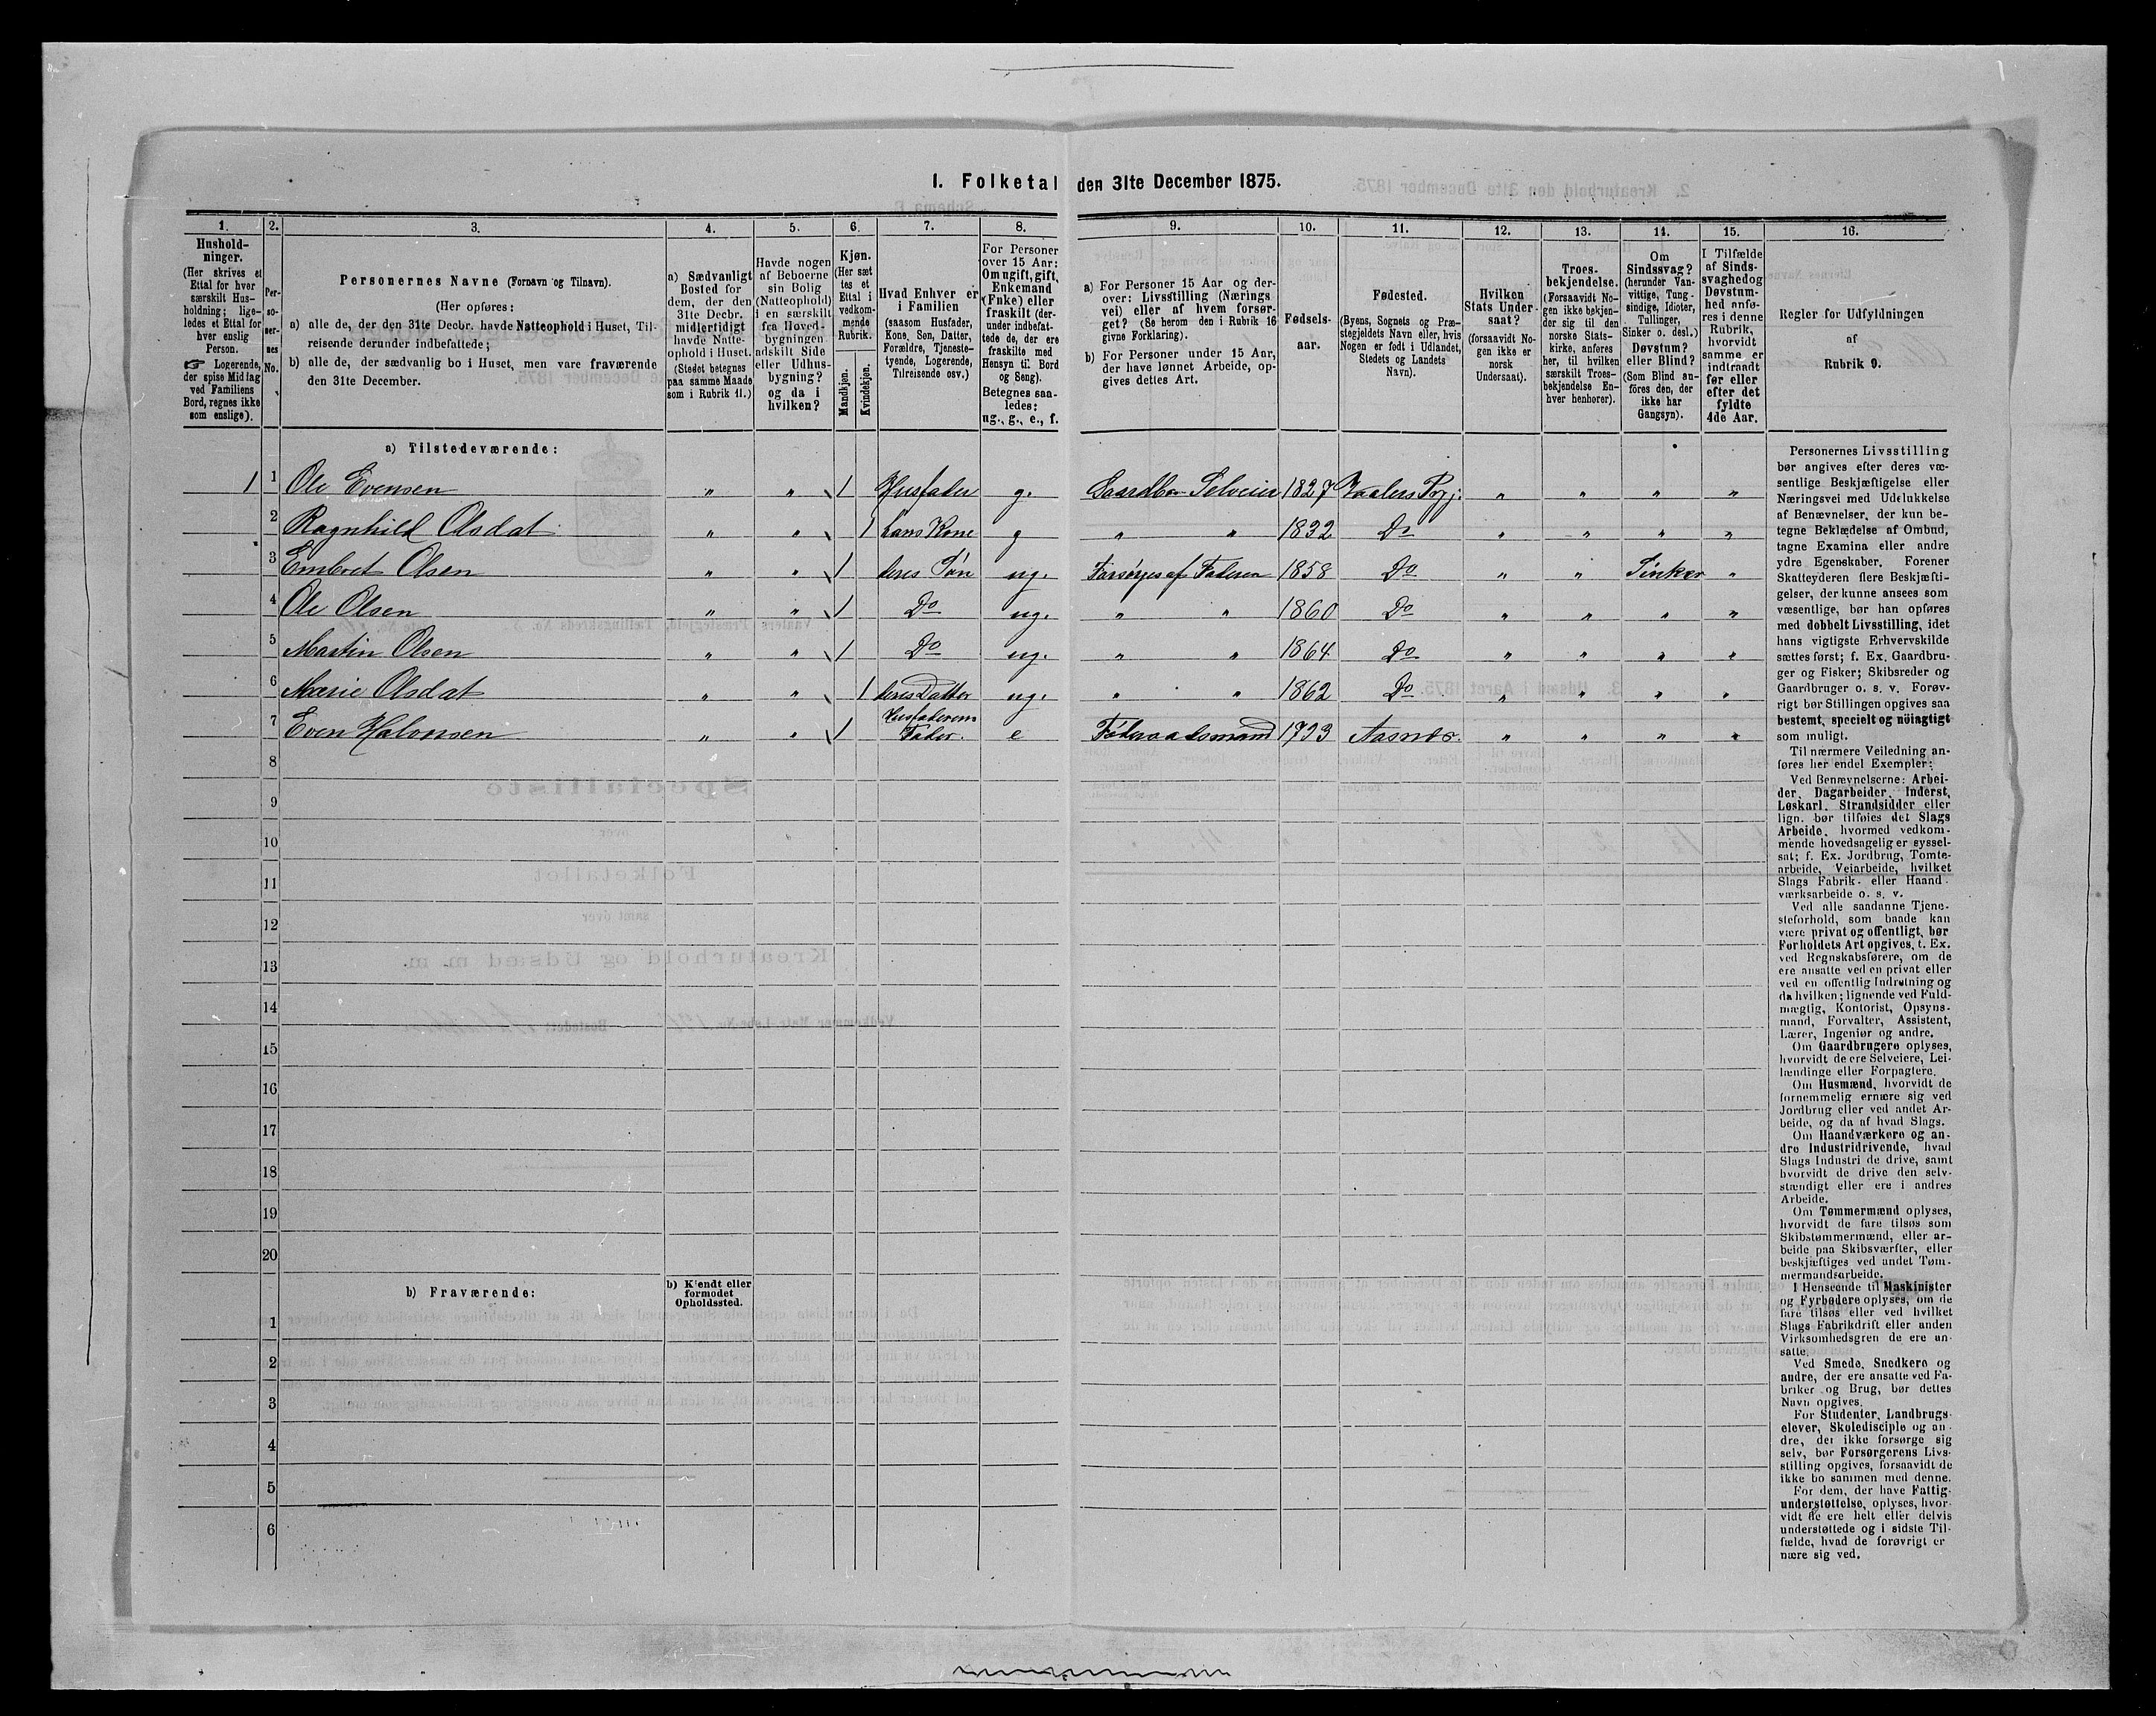 1. Folketal den 31te December 1875.
1. 2. 3. 4. 5. 6. 7. 8. 9. 10. 11. 12. 13. 14. 15. 16.
Hushold-
ninger.
(Her skrives et
Ettal for hver
særskilt Hus-
holdning; lige-
ledes et Ettal for
hver enslig
Person.
☞ Logerende,
der spise Middag
ved Familiens
Bord, regnes ikke
som enslige).
Per-
so-
ner-
nes
No.
Personernes Navne (Fornavn og Tilnavn).
(Her opføres:
a) alle de, der den 31te Decbr. havde Natteophold i Huset, Til-
reisende derunder indbefattede;
b) alle de, der sædvanlig bo i Huset, men vare fraværende
den 31te December.
a) Sædvanligt
Bosted for
dem, der den
31te Decbr.
midlertidigt
havde Natte-
ophold i Huset.
(Stedet betegnes
paa samme Maade
som i Rubrik 11.)
Havde nogen
af Beboerne
sin Bolig
(Natteophold)
i en særskilt
fra Hoved-
bygningen
adskilt Side
eller Udhus-
bygning?
og da i
hvilken?
Kjøn.
(Her sæt
tes et
Ettal i
vedkom-
mende
Rubrik.
Mandkjøn.
Kvindekjøn.
Hvad Enhver er
i Familien
(saasom Husfader,
Kone, Søn, Datter,
Forældre, Tjeneste-
tyende, Logerende,
Tilreisende osv.)
For Personer
over 15 Aar:
Om ugift, gift,
Enkemand
(Enke) eller
fraskilt (der-
under indbefat-
tede de, der ere
fraskilte med
Hensyn til Bord
og Seng).
Betegnes saa-
ledes:
ug., g., e., f.
a) For Personer 15 Aar og der-
over: Livsstilling (Nærings
vei) eller af hvem forsør-
get? (Se herom den i Rubrik 16
givne Forklaring).
b) For Personer under 15 Aar,
der have lønnet Arbeide, op-
gives dettes Art.
Fødsels-
aar.
Fødested.
(Byens, Sognets og Præ-
stegjeldets Navn eller, hvis
Nogen er født i Udlandet,
Stedets og Landets
Navn).
Hvilken
Stats Under-
saat?
(forsaavidt No-
gen ikke er
norsk
Undersaat).
Troes-
bekjendelse.
(Forsaavidt No-
gen ikke bekjen-
der sig til den
norske Stats-
kirke, anføres
her, til hvilken
særskilt Troes-
bekjendelse En-
hver henhører).
Om
Sindssvag?
(herunder Van-
vittige, Tung-
sindige, Idioter,
Tullinger,
Sinker o. desl.)
Døvstum?
eller Blind?
(Som Blind an-
föres den, der
ikke har
Gangsyn).
I Tilfælde
af Sinds-
svaghed og
Døvstum-
hed anfø-
res i denne
Rubrik,
hvorvidt
samme er
indtraadt
før eller
efter det
fyldte
4de Aar.
Regler for Udfyldningen
af
Rubrik 9.
a) Tilstedeværende:
1 1 Ole Evensen " " 1 Husfader g. Gaardbr. Selveier 1827 Vaalers Prgj. " " " "
2 Ragnhild Olsdat " " 1 hans Kone g " " 1832 Do " " " "
3 Embret Olsen " " 1 deres Søn ug. Forsørges af Faderen 1858 Do " " Sinker "
4 Ole Olsen " " 1 Do ug. " " 1860 Do " " " "
5 Martin Olsen " " 1 Do ug. " " 1864 Do " " " "
6 Marie Olsdat " " 1 deres Datter ug. " " 1862 Do " " " "
7 Even Halvorsen " " 1 Husfaderens Fader. e Föderaadsmand 1793 Aasnæs. " " " "
8
9
10
11
12
13
14
15
16
17
18
19
20
b) Fraværende:
b) Kjendt eller
formodet
Opholdssted.
1
2
3
4
5
6
Personernes Livsstilling
bør angives efter deres væ-
sentlige Beskjæftigelse eller
Næringsvei med Udelukkelse
af Benævnelser, der kun be-
tegne Beklædelse af Ombud,
tagne Examina eller andre
ydre Egenskaber. Forener
Skatteyderen flere Beskjæfti-
gelser, der kunne ansees som
væsentlige, bør han opføres
med dobbelt Livsstilling, idet
hans vigtigste Erhvervskilde
sættes først; f. Ex. Gaardbru-
ger og Fisker; Skibsreder og
Gaardbruger o. s. v. Forøv-
rigt bør Stillingen opgives saa
bestemt, specielt og nöiagtigt
som muligt.
Til nærmere Veiledning an-
føres her endel Exempler:
Ved Benævnelserne: Arbei-
der, Dagarbeider, Inderst,
Løskarl, Strandsidder eller
lign. bør tilføies det Slags
Arbeide, hvormed vedkom-
mende hovedsagelig er syssel-
sat; f. Ex. Jordbrug, Tomte-
arbeide, Veiarbeide, hvilket
Slags Fabrik- eller Haand-
værksarbeide o. s. v.
Ved alle saadanne Tjene-
steforhold, som baade kan
være privat og offentligt, bør
Forholdets Art opgives, t. Ex.
ved Regnskabsførere, om de
ere ansatte ved en privat eller
ved en offentlig Indretning og
da hvilken; lignende ved Fuld-
mægtig, Kontorist, Opsyns-
mand, Forvalter, Assistent,
Lærer, Ingeniør og andre.
Om Gaardbrugere oplyses,
hvorvidt de ere Selveiere, Lei-
lændinge eller Forpagtere.
Om Husmænd, hvorvidt de
fornemmelig ernære sig ved
Jordbrug eller ved andet Ar-
beide, og da af hvad Slags.
Om Haandværkere og an-
dre Industridrivende, hvad
Slags Industri de drive, samt
hvorvidt de drive den selv-
stændigt eller ere i andres
Arbeide.
Om Tømmermænd oplyses,
hvorvidt de fare tilsøs som
Skibstømmermænd, eller ar-
beide paa Skibsværfter, eller
beskjæftiges ved andet Tøm-
mermandsarbeide.
I Henseende til Maskinister
og Fyrbødere oplyses, om de
fare tilsøs eller ved hvilket
Slags Fabrikdrift eller anden
Virksomhedsgren de ere an-
satte.
Ved Smede, Snedkere og
andre, der ere ansatte ved Fa-
briker og Brug, bør dettes
Navn opgives.
For Studenter, Landbrugs-
elever, Skoledisciple og an-
dre, der ikke forsørge sig
selv, bør Forsørgerens Livs-
stilling opgives, forsaavidt de
ikke bo sammen med denne.
For dem, der have Fattig-
understøttelse, oplyses, hvor-
vidt de ere helt eller delvis
understøttede og i sidste Til-
fælde, hvad de forøvrigt er
nære sig ved.